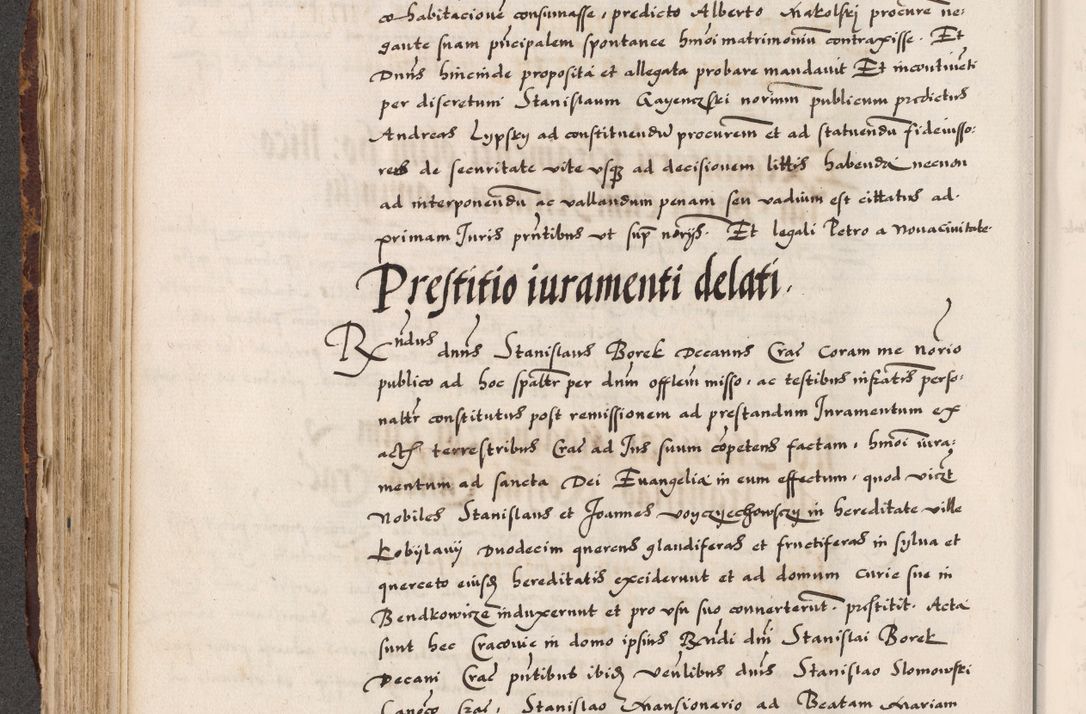 cohabitacione consumasse, predicto Alberto Makolski procure ne:
gante suam pncipalem spontanee hmoi matrimoniu contraxisse. Et
Dnus hincinde proposita et allegata probare mandauit Et incontineti
per discretum Stanislaum Gayenczski norium publicum predictus
Andreas Lypsky ad constituendu procurem et ad statuendu fideiusso:
res de securitate vite vsq ad decisionem littis habenda necnon
ad interponendu ac vallandum penam seu vadium est cittatus ad
primam Juris pntibus vt sup norijs. Et legali Petro a Novacivitate
Prestitio iuramenti delati.
Rndus dnus Stanislaus Borek Decanus Crac Coram me norio
publico ad hoc spaltr per dnm offlem misso, ac testibus infratis perso:
naltr constitutus post remissionem ad prestandum Iuramentum ex
actis terrestribus Crac ad Ius suum copetens factam, hmoi iura:
mentum ad sancta Dei Euangelia in eum effectum, quod viczt
Nobiles Stanislaus et Joannes Voyczyechowsczy in hereditate ville
Kobijlanij Duodecim quercus glandiferas et fructiferas in sylua et
querceto eiusd hereditatis exciderunt et ad domum Curie sue in
Bendkowicze induxerunt et pro vsu suo conuerterut. prestitit. Acta
sunt hec Cracovie in domo ipsius Rndi dni Stanislai Borek
Decani Crac pntibus ibid venlibus dnis Stanislao Slomowski
Canoco Crac, Stanislao Mansionario ad Beatam Mariam